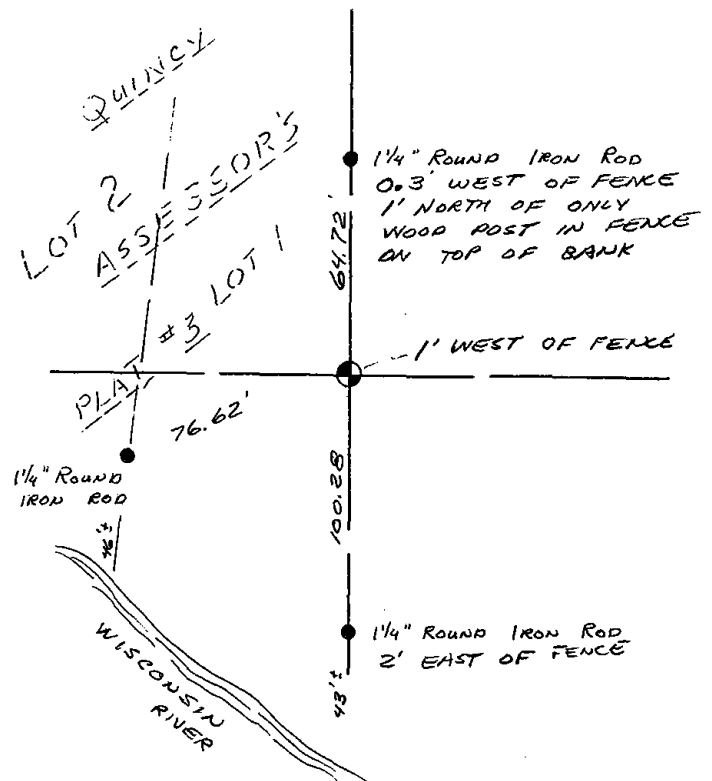 QUINCY
LOT 2
ASSESSOR'S
PLAT #3 LOT 1
1¼" ROUND IRON ROD
0.3' WEST OF FENCE
1' NORTH OF ONLY
WOOD POST IN FENCE
ON TOP OF BANK
64.72'
1' WEST OF FENCE
76.62'
1¼" ROUND
IRON ROD
100.28
46'±
1¼" ROUND IRON ROD
2' EAST OF FENCE
43'±
WISCONSIN
RIVER